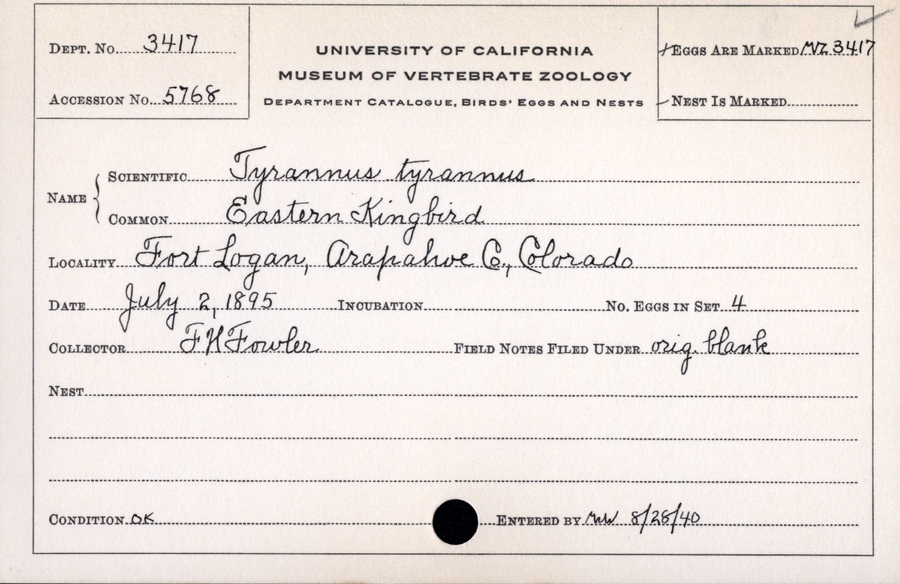 DEPT. NO. 3417
ACCESSION NO. 5768
UNIVERSITY OF CALIFORNIA
MUSEUM OF VERTEBRATE ZOOLOGY
DEPARTMENT CATALOGUE, BIRDS' EGGS AND NESTS
EGGS ARE MARKED MVZ 3417
NEST IS MARKED
NAME
SCIENTIFIC Tyrannus tyrannus
COMMON Eastern Kingbird
LOCALITY Fort Logan, Arapahoe Co., Colorado
DATE July 2, 1895 INCUBATION NO. EGGS IN SET 4
COLLECTOR F H Fowler FIELD NOTES FILED UNDER orig. blank
NEST
CONDITION OK ENTERED BY 8/28/40